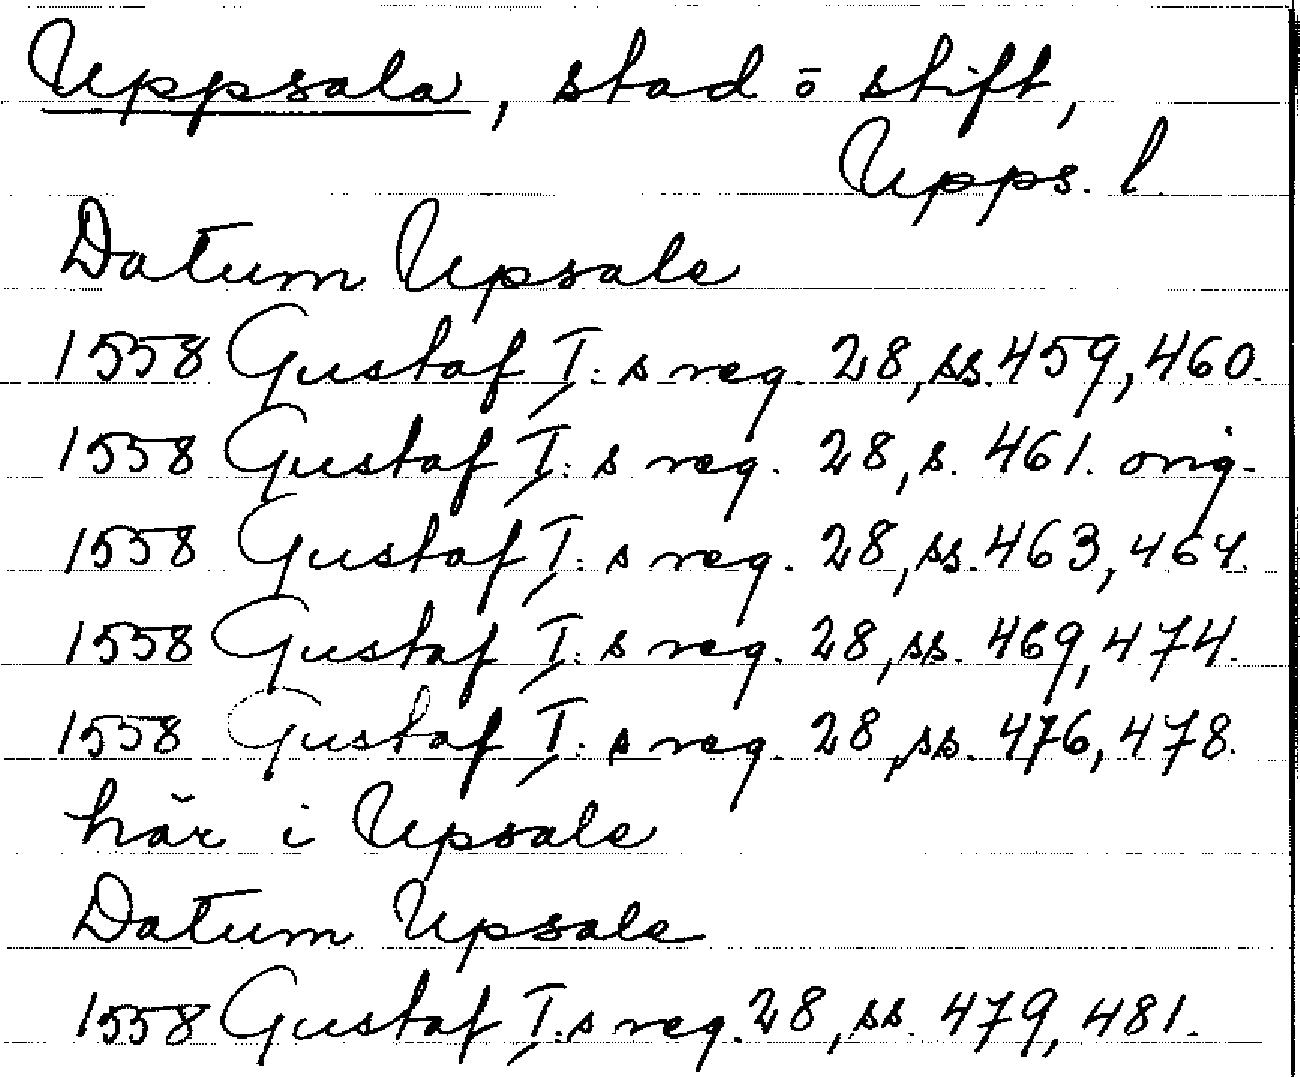 Uppsala, stad o stift,
Upps. l.
Datum Upsale
1558 Gustaf I:s reg. 28, ss. 459, 460.
1558 Gustaf I:s reg. 28, s. 461. orig.
1558 Gustaf I:s reg. 28, ss. 463, 464.
1558 Gustaf I:s reg. 28, ss. 469, 474.
1558 Gustaf I:s reg. 28, ss. 476, 478.
här i Upsale
Datum Upsale
1558 Gustaf I:s reg. 28, ss. 479, 481.